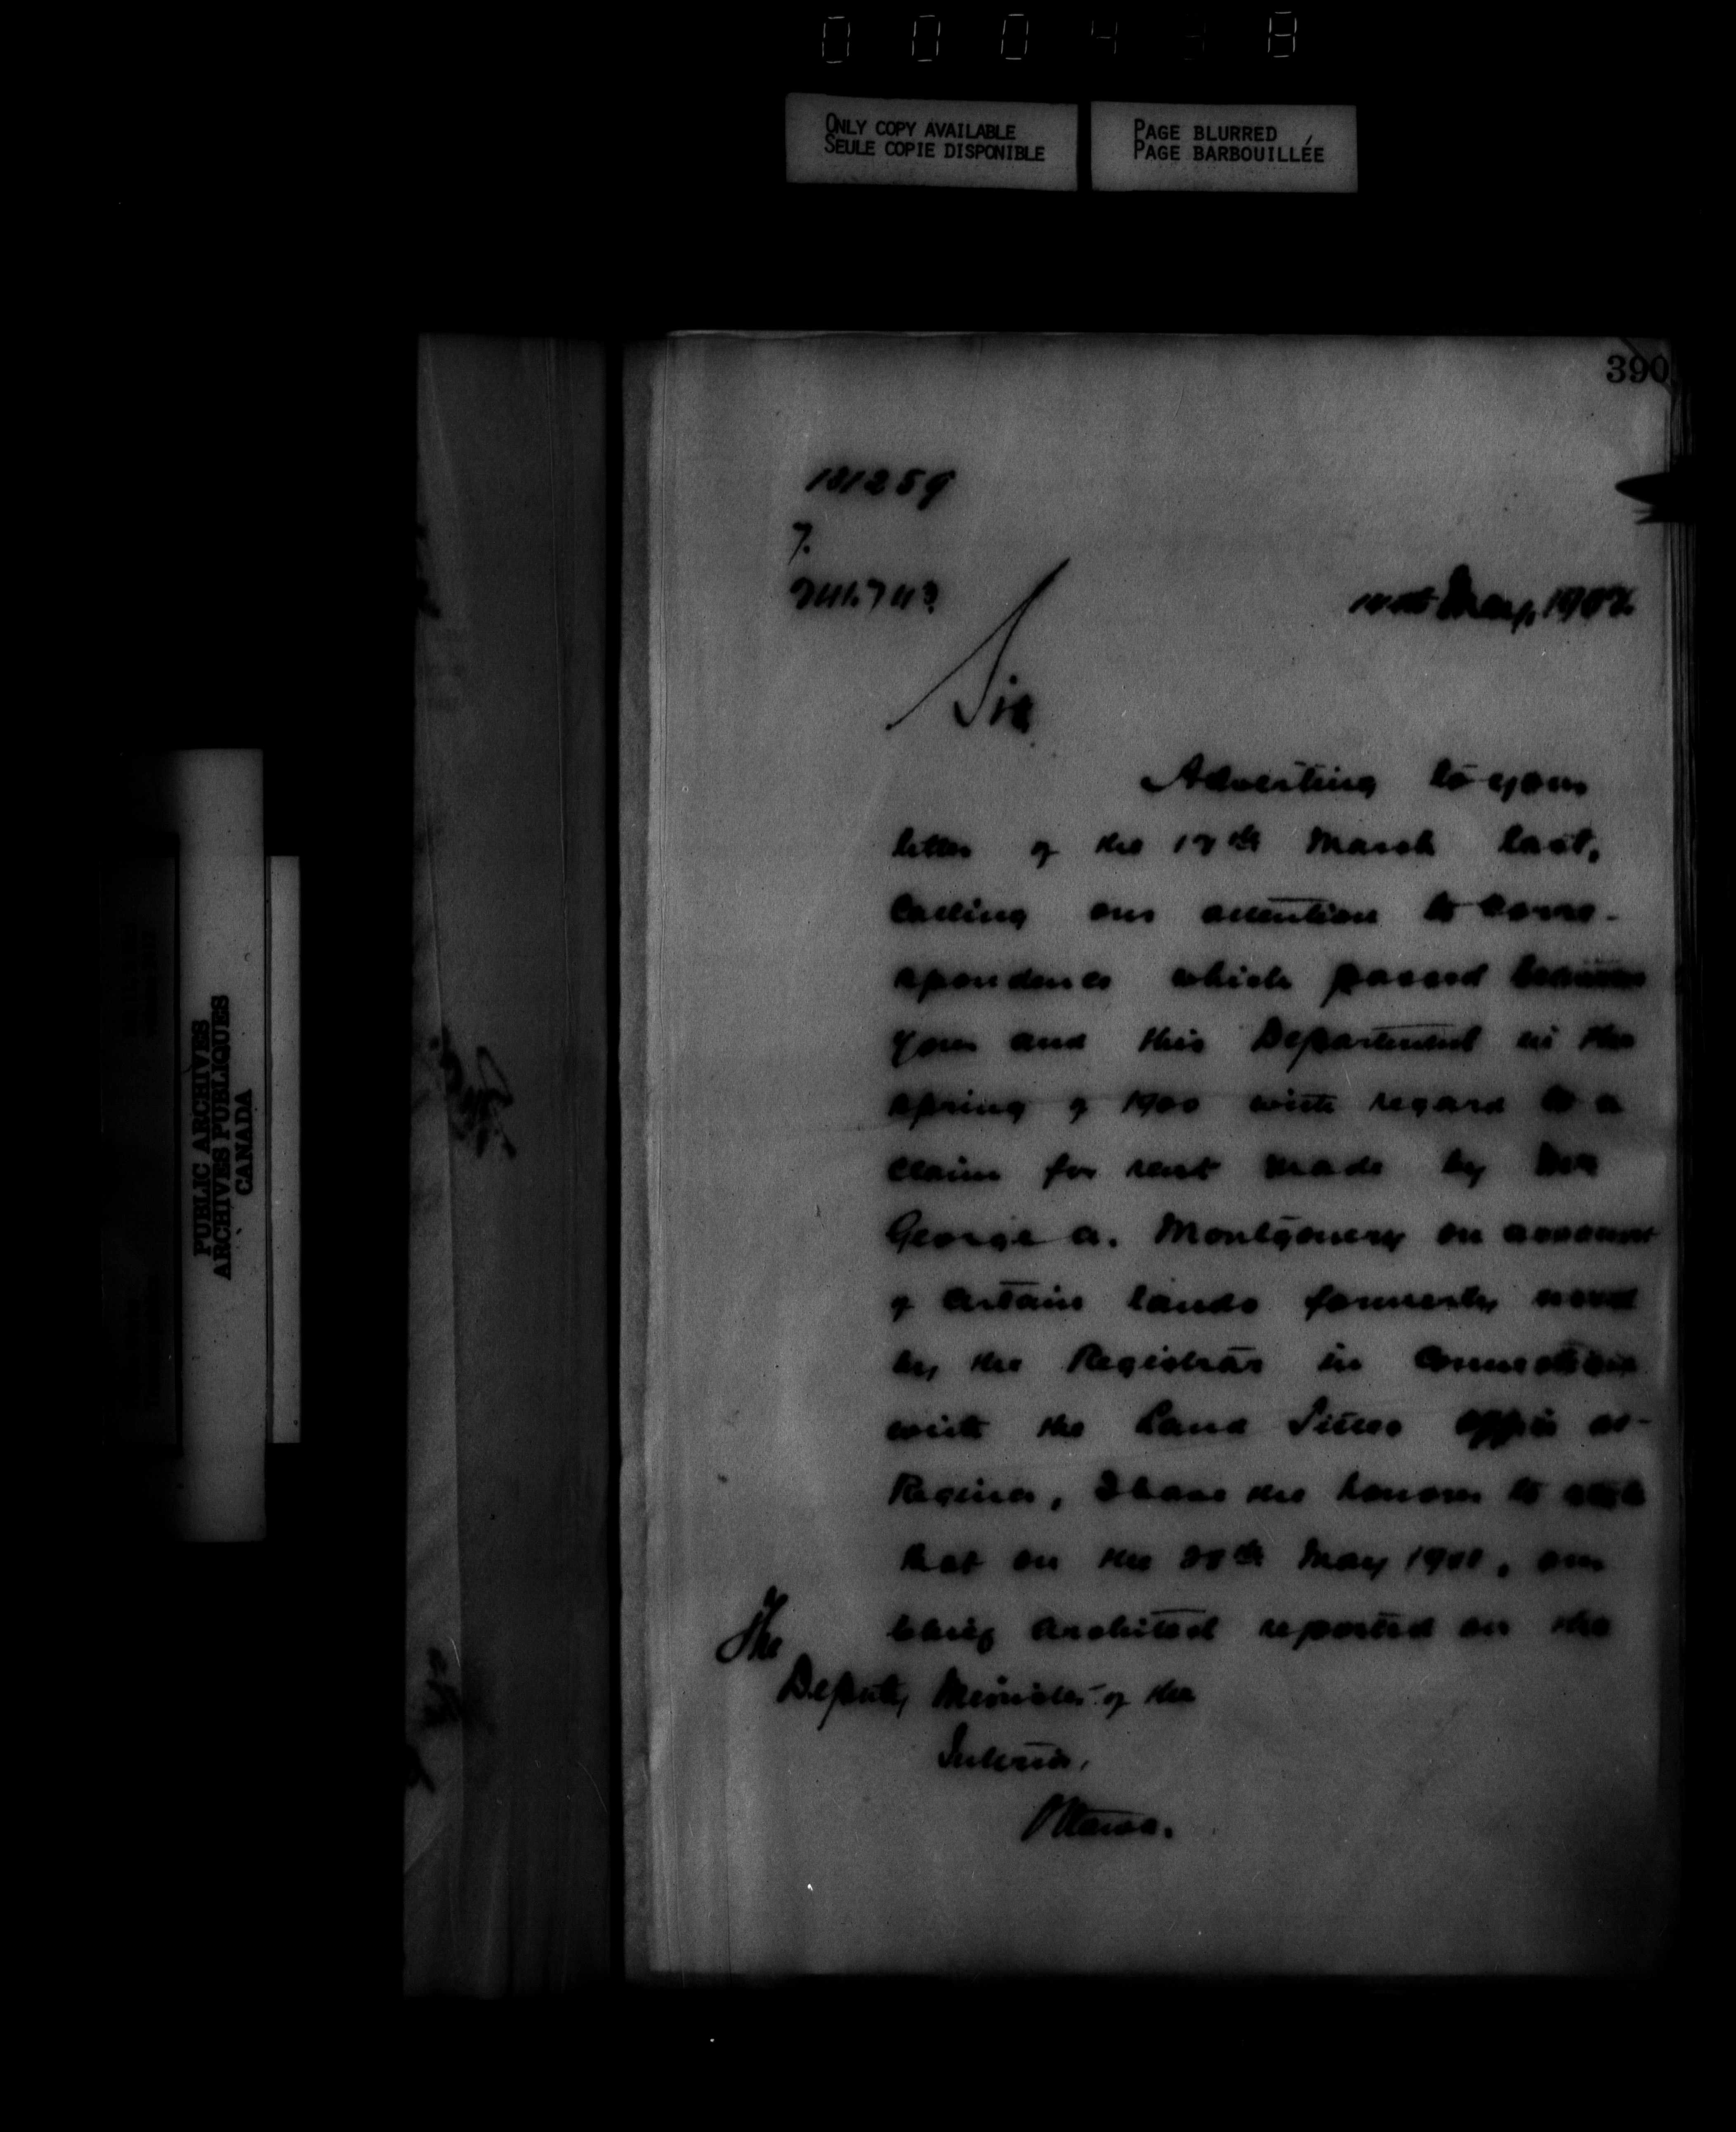 ONLY COPY AVAILABLE
SEULE COPIE DISPONIBLE
PAGE BLURRED
PAGE BARBOUILLÉE
390
131259
7.
May, 1902
Sir
Adverting to your
letter of the 17th March last,
calling our attention to corre-
spondence which passed between
your and this Department in the
spring of 1900 with regard to a
claim for rent made by Mr
George A. Montgomery on account
of certain lands formerly used
by the Registrar in connection
with the Land Titles Office at
Regina, I have the honour to state
that on the 28th May 1900, our
Chief Architect reported on the
The
Deputy Minister of the
Interior,
Ottawa.
PUBLIC ARCHIVES
ARCHIVES PUBLIQUES
CANADA